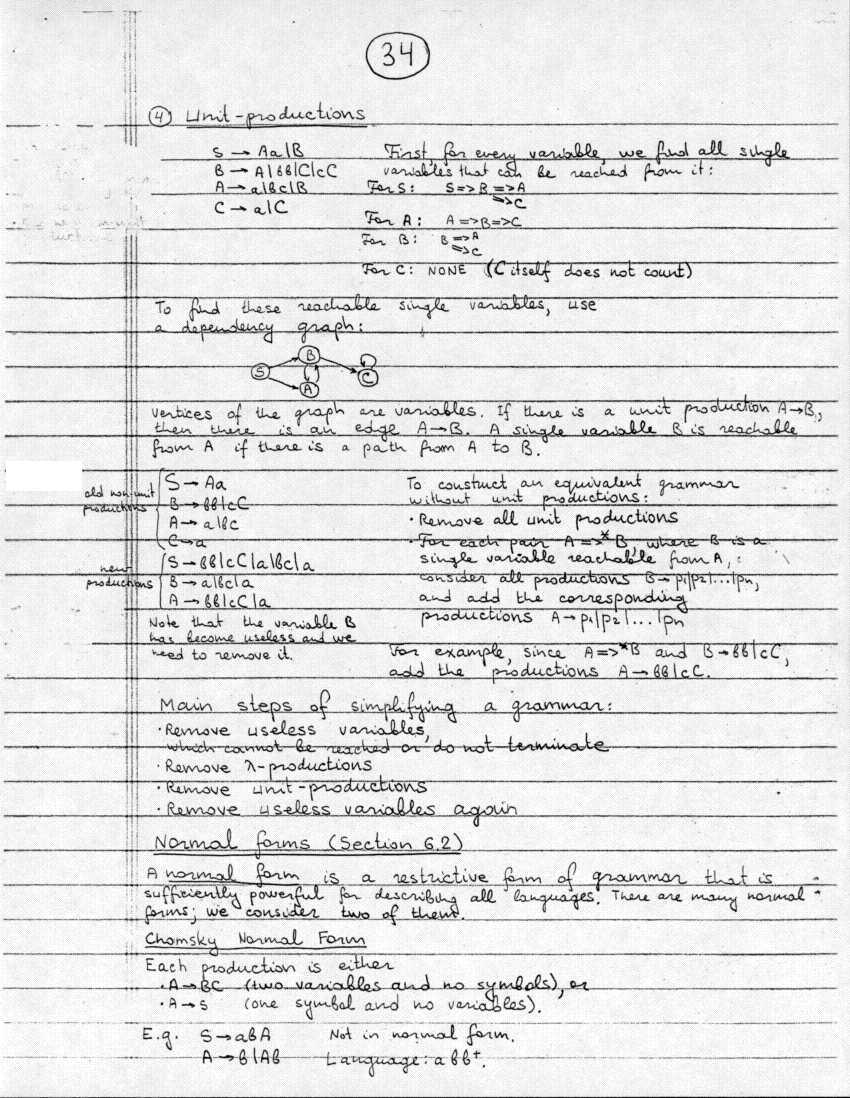 34
④ Unit-productions
S → Aa|B
B → A|bb|C|cC
A → a|bc|B
C → a|C
First, for every variable, we find all single
variables that can be reached from it:
For S: S=>B=>A
=>C
For A: A=>B=>C
For B: B=>A
=>C
For C: NONE (C itself does not count)
To find these reachable single variables, use
a dependency graph:
S B A C
Vertices of the graph are variables. If there is a unit production A→B,
then there is an edge A→B. A single variable B is reachable
from A if there is a path from A to B.
old non-unit
productions
S → Aa
B → bb|cC
A → a|bc
C → a
new
productions
S → bb|cC|a|bc|a
B → a|bc|a
A → bb|cC|a
Note that the variable B
has become useless and we
need to remove it.
To construct an equivalent grammar
without unit productions:
· Remove all unit productions
· For each pair A =>* B, where B is a
single variable reachable from A,
consider all productions B→p1|p2|...|pn,
and add the corresponding
productions A→p1|p2|...|pn
For example, since A=>*B and B→bb|cC,
add the productions A→bb|cC.
Main steps of simplifying a grammar:
· Remove useless variables,
which cannot be reached or do not terminate
· Remove λ-productions
· Remove unit-productions
· Remove useless variables again
Normal forms (Section 6.2)
A normal form is a restrictive form of grammar that is
sufficiently powerful for describing all languages. There are many normal
forms; we consider two of them.
Chomsky Normal Form
Each production is either
· A→BC (two variables and no symbols), or
· A→s (one symbol and no variables).
E.g. S→abA Not in normal form.
A→b|Ab Language: abb⁺.